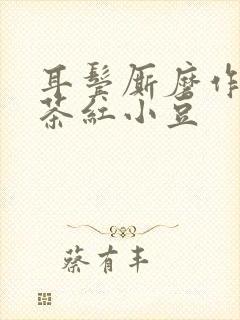 耳鬓厮磨作
茶红小豆
蔡有丰